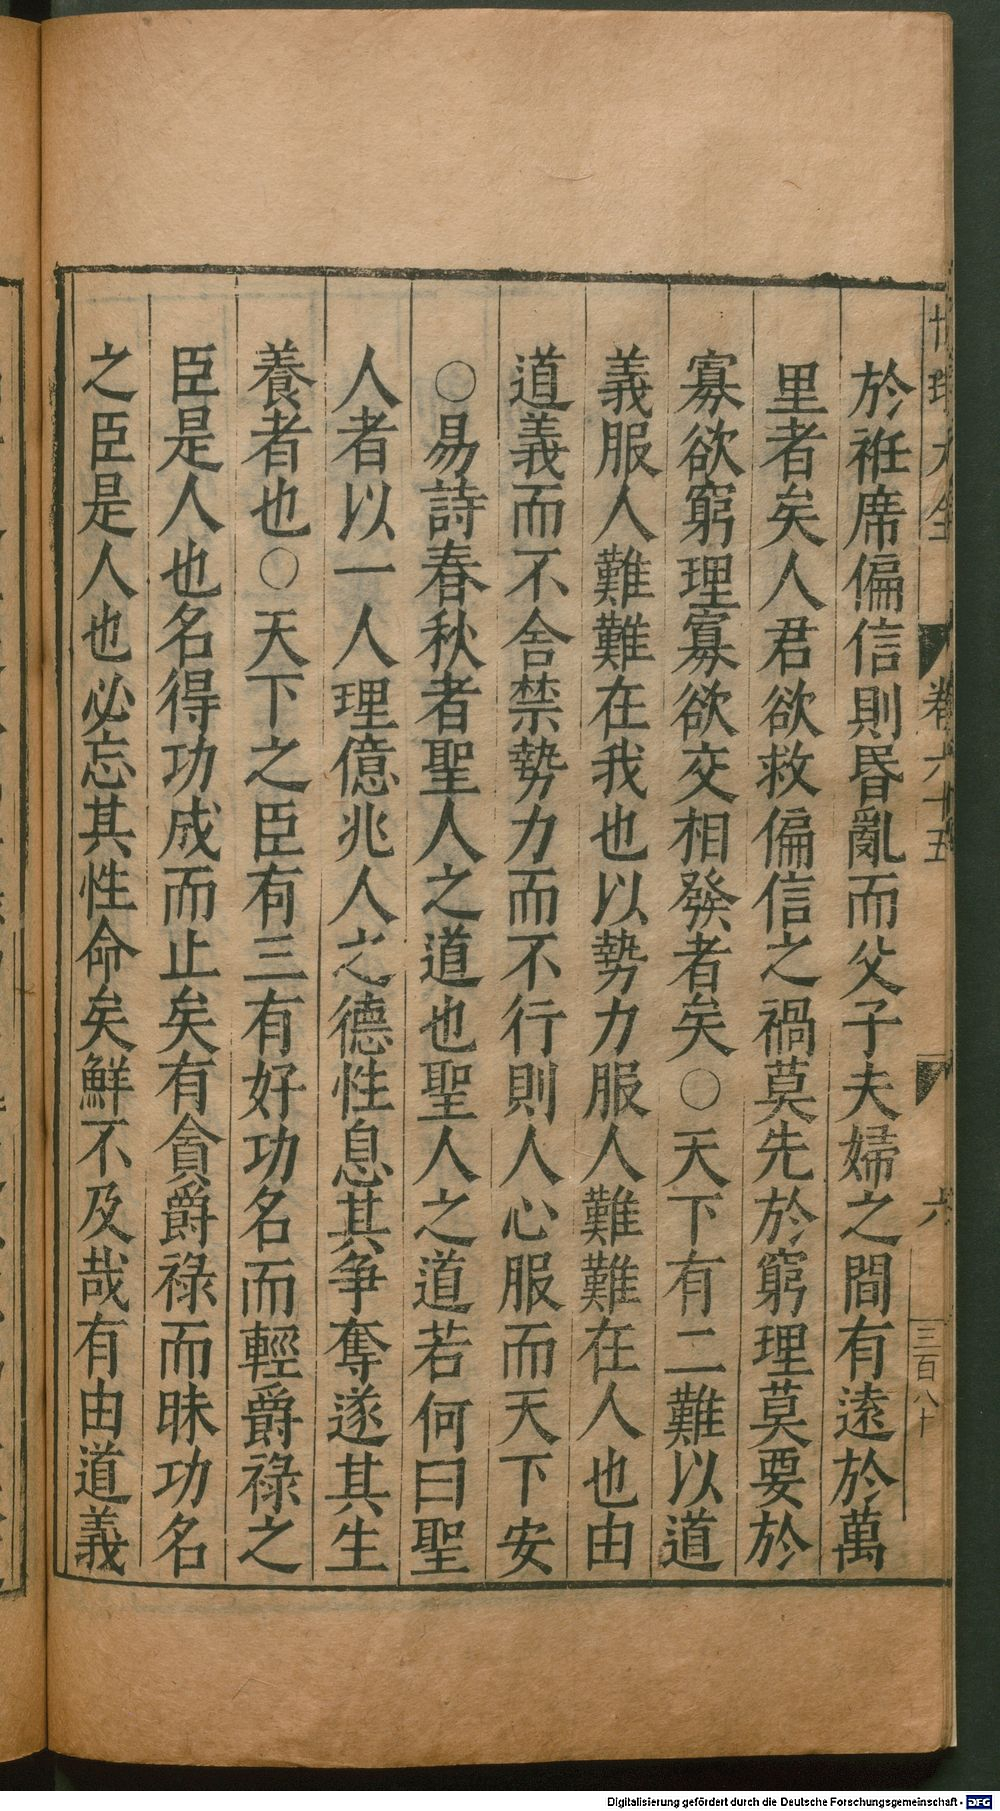 卷六十五
六
三百八十
於袵席偏信則昬亂而父子夫婦之間有遠於萬
里者矣人君欲救偏信之禍莫先於窮理莫要於
寡欲窮理寡欲交相發者矣○天下有二難以道
義服人難難在我也以勢力服人難難在人也由
道義而不舍禁勢力而不行則人心服而天下安
○易詩春秋者聖人之道也聖人之道若何曰聖
人者以一人理億兆人之德性息其爭奪遂其生
養者也○天下之臣有三有好功名而輕爵祿之
臣是人也名得功成而止矣有貪爵祿而昧功名
之臣是人也必忘其性命矣鮮不及哉有由道義
Digitalisierung gefördert durch die Deutsche Forschungsgemeinschaft - DFG